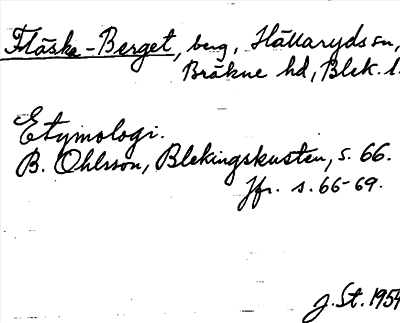 Fläske-Berget, berg, Hällaryds sn,
Bräkne hd, Blek. l.
Etymologi.
B. Ohlsson, Blekingskusten, s. 66.
Jfr. s. 66-69.
J. St. 1954